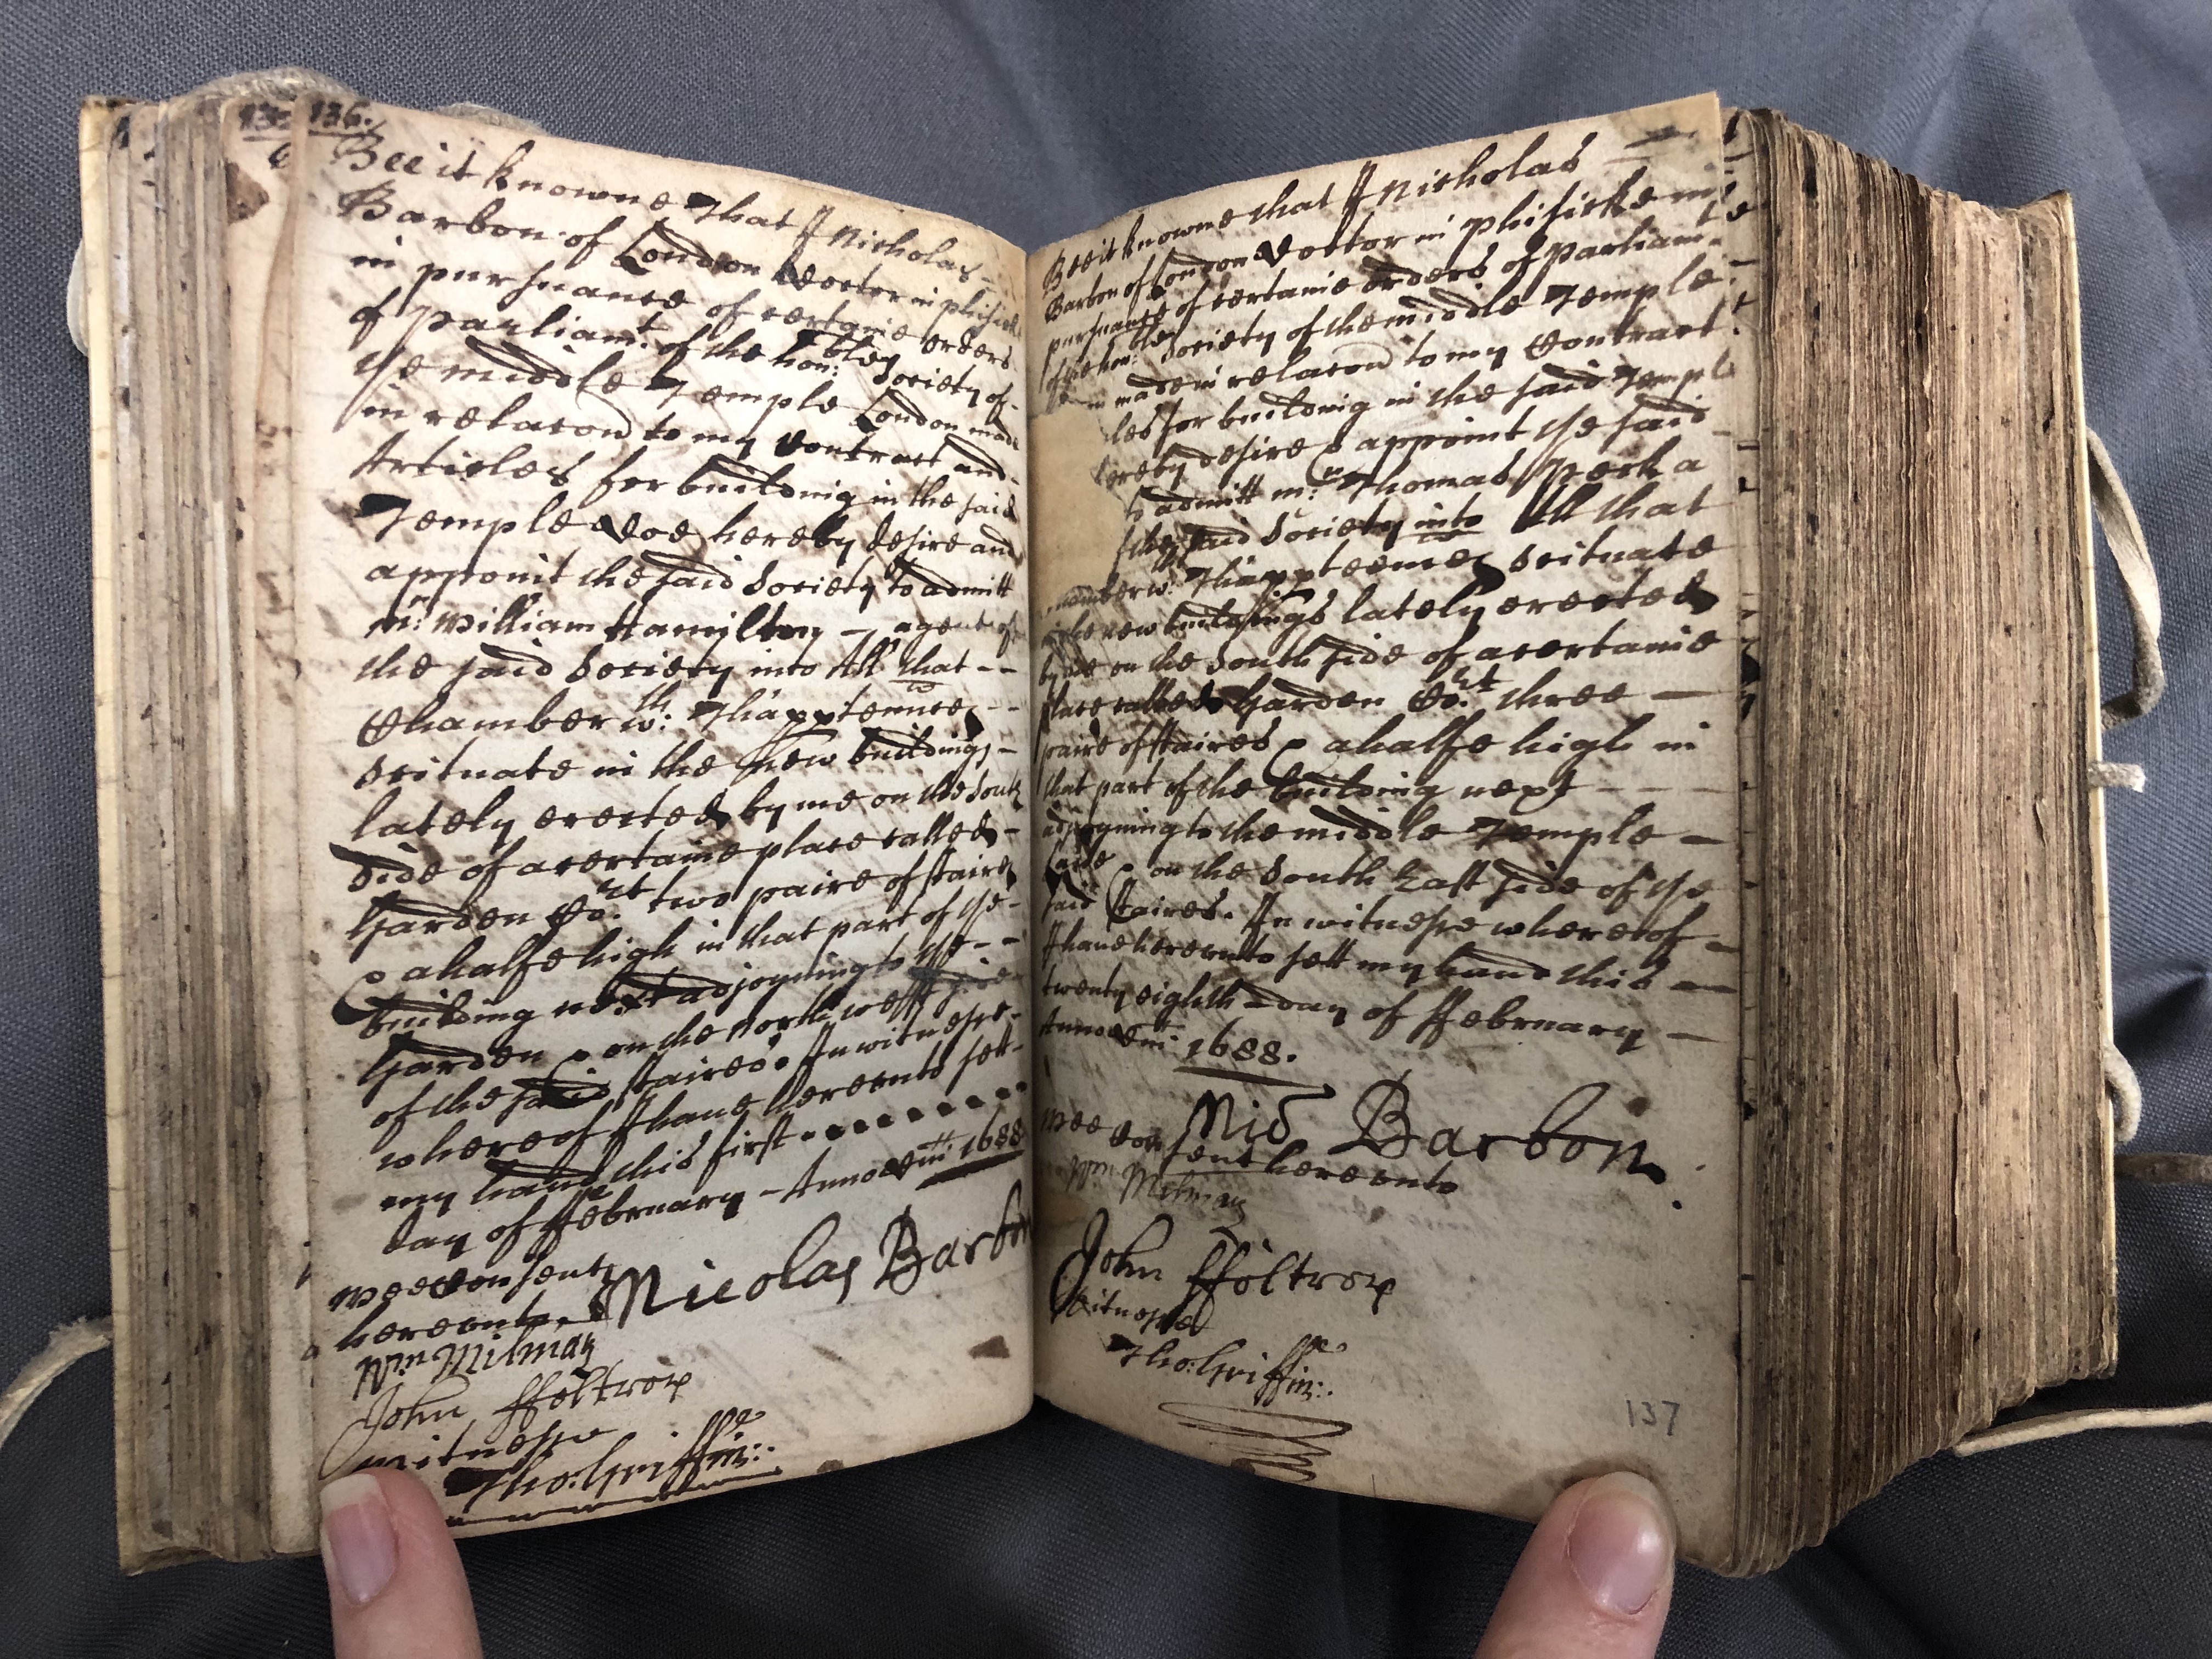 136.
Bee it knowne That I Nicholas
Barbon of London Doctor in phisick
in pursuance of certaine orders
of Parliamt. of the hon:ble Society of
the middle Temple London made
in relacon to my Contract and
Articles for building in the said
Temple Doe hereby desire and
appoint the said Society to admitt
mr: William Hamilton agent of
the said Society into All that
Chamber wth: Th'appten'nces
scituate in the new buildings
lately erected by me on the South
Side of a certaine place called
Garden Co:rt two paire of staires
& a halfe high in that part of the
building next adjoyning to the
Garden & on the North west side
of the said staires. In witnesse
whereof I have hereunto sett
my hand this first
day of ffebruary Anno Dni 1688
Wee Consent
hereunto Nicolas Barbon
Wm Milman
John ffoltrop
Witnesse
Tho: Griffin:
Bee it knowne that I Nicholas
Barbon of London Doctor in phisicke in
pursuance of certaine orders of Parliamt.
of the hon:ble Society of the middle Temple
made in relacon to my Contract
les for building in the said Temple
hereby desire & appoint the said
to admitt mr: Thomas Peck a
the said Society into All that
Chamber wth: Th'apptennces scituate
in the new buildings lately erected
by me on the South side of a certaine
place called Garden Co:rt three
paire of staires & a halfe high in
that part of the building next
adjoyning to the middle Temple
Lane & on the South East side of the
said staires. In witnesse whereof
I have hereunto sett my hand this
twenty eighth day of ffebruary
Anno Dni 1688.
Nic Barbon
Wee Consent hereunto
Wm Milman
John ffoltrop
Witnesse
Tho: Griffin:
137